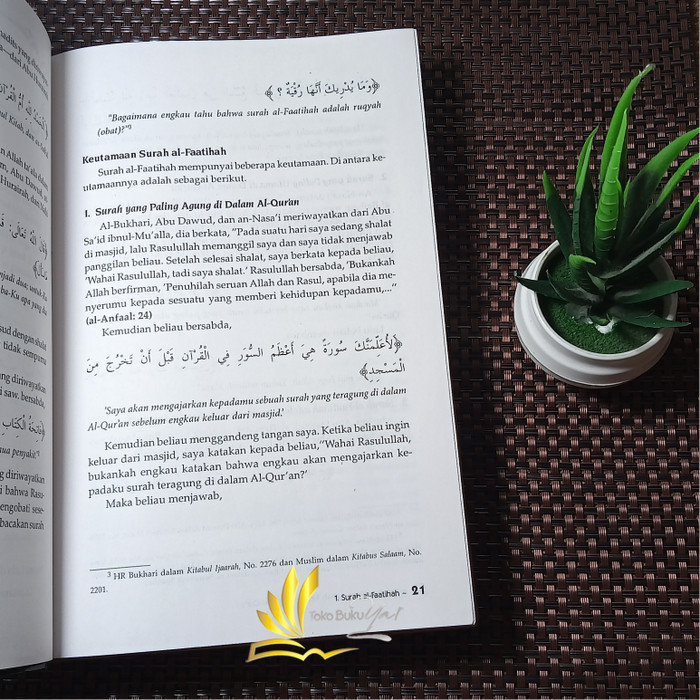 hadits yang di
—dari Abu Hurairah
﴿وَمَا يُدْرِيكَ أَنَّهَا رُقْيَةٌ ؟﴾
"Bagaimana engkau tahu bahwa surah al-Faatihah adalah ruqyah
(obat)?"³
Keutamaan Surah al-Faatihah
Surah al-Faatihah mempunyai beberapa keutamaan. Di antara ke-
utamaannya adalah sebagai berikut.
1. Surah yang Paling Agung di Dalam Al-Qur'an
Al-Bukhari, Abu Dawud, dan an-Nasa'i meriwayatkan dari Abu
Sa'id ibnul-Mu'alla, dia berkata, "Pada suatu hari saya sedang shalat
di masjid, lalu Rasulullah memanggil saya dan saya tidak menjawab
panggilan beliau. Setelah selesai shalat, saya berkata kepada beliau,
'Wahai Rasulullah, tadi saya shalat.' Rasulullah bersabda, 'Bukankah
Allah berfirman, 'Penuhilah seruan Allah dan Rasul, apabila dia me-
nyerumu kepada sesuatu yang memberi kehidupan kepadamu,..."
(al-Anfaal: 24)
Kemudian beliau bersabda,
﴿لَأُعَلِّمَنَّكَ سُورَةً هِيَ أَعْظَمُ السُّوَرِ فِي الْقُرْآنِ قَبْلَ أَنْ تَخْرُجَ مِنَ
الْمَسْجِدِ﴾
'Saya akan mengajarkan kepadamu sebuah surah yang teragung di dalam
Al-Qur'an sebelum engkau keluar dari masjid.'
Kemudian beliau menggandeng tangan saya. Ketika beliau ingin
keluar dari masjid, saya katakan kepada beliau,"Wahai Rasulullah,
bukankah engkau katakan bahwa engkau akan mengajarkan ke-
padaku surah teragung di dalam Al-Qur'an?'
Maka beliau menjawab,
³ HR Bukhari dalam Kitabul Ijaarah, No. 2276 dan Muslim dalam Kitabus Salaam, No.
2201.
1. Surah al-Faatihah – 21
Toko Buku Yai